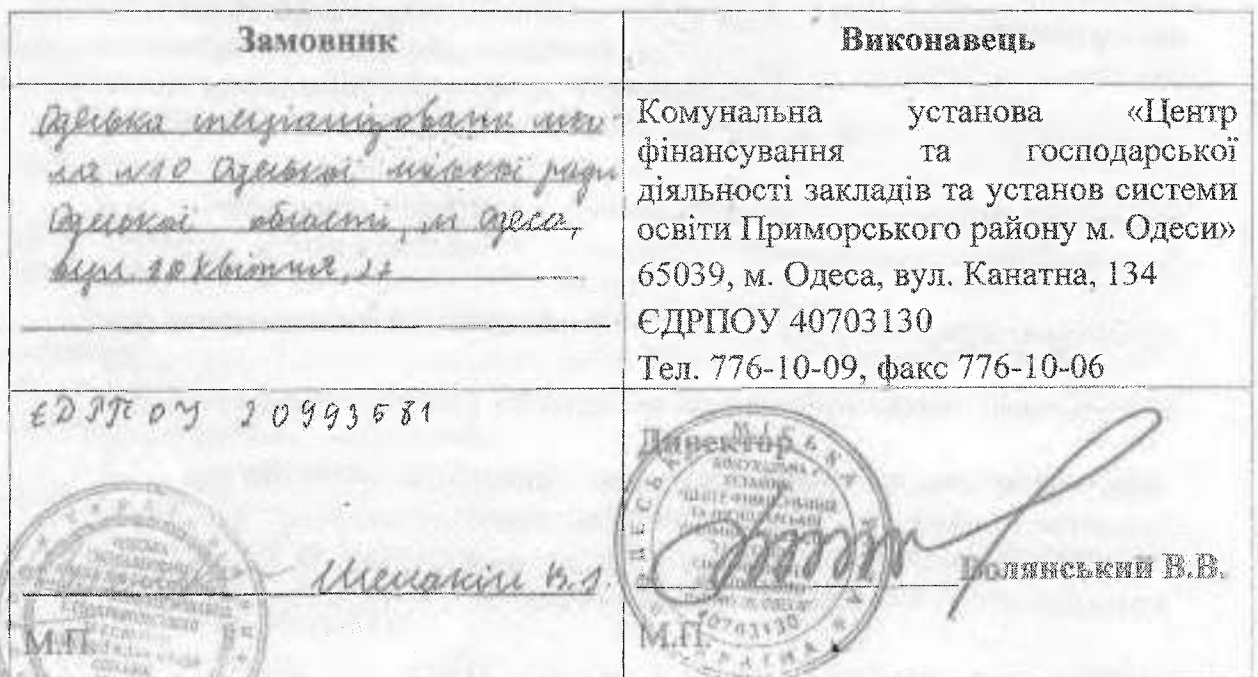 Замовник
Одеська спеціалізована шко-
ла №10 Одеської міської ради
Одеської області, м Одеса,
вул.
ЄДРПОУ
М.П.
Виконавець
Комунальна установа «Центр
фінансування та господарської
діяльності закладів та установ системи
освіти Приморського району м. Одеси»
65039, м. Одеса, вул. Канатна, 134
ЄДРПОУ 40703130
Тел. 776-10-09, факс 776-10-06
Директор
Волянський В.В.
М.П.
40703130